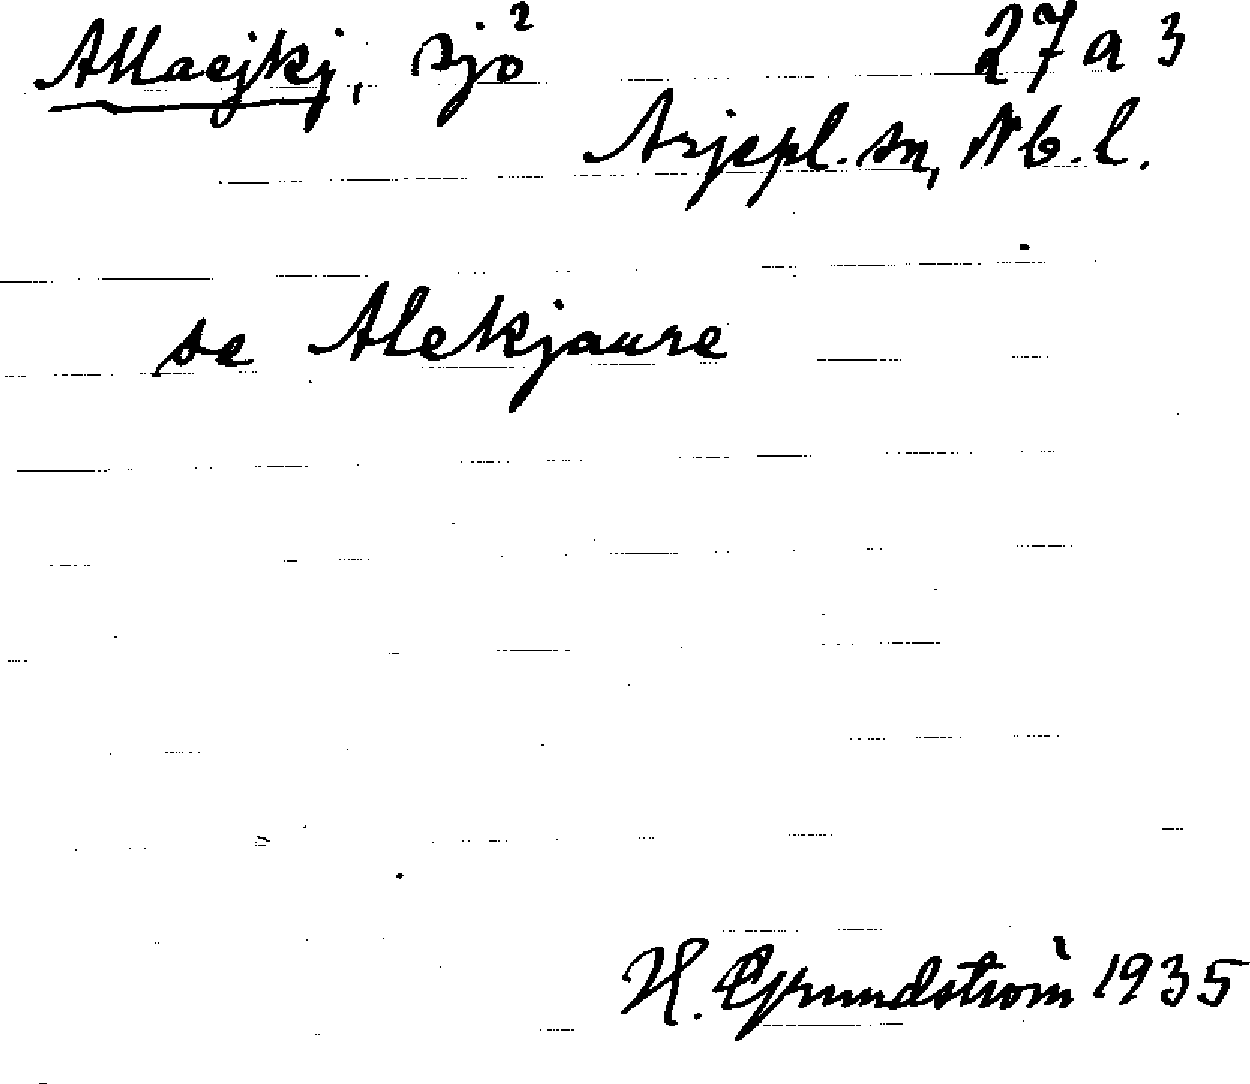 Allaejkj, sjö² 27 a 3
Arjepl. sn, Nb. l.
se Alekjaure
H. Grundström 1935